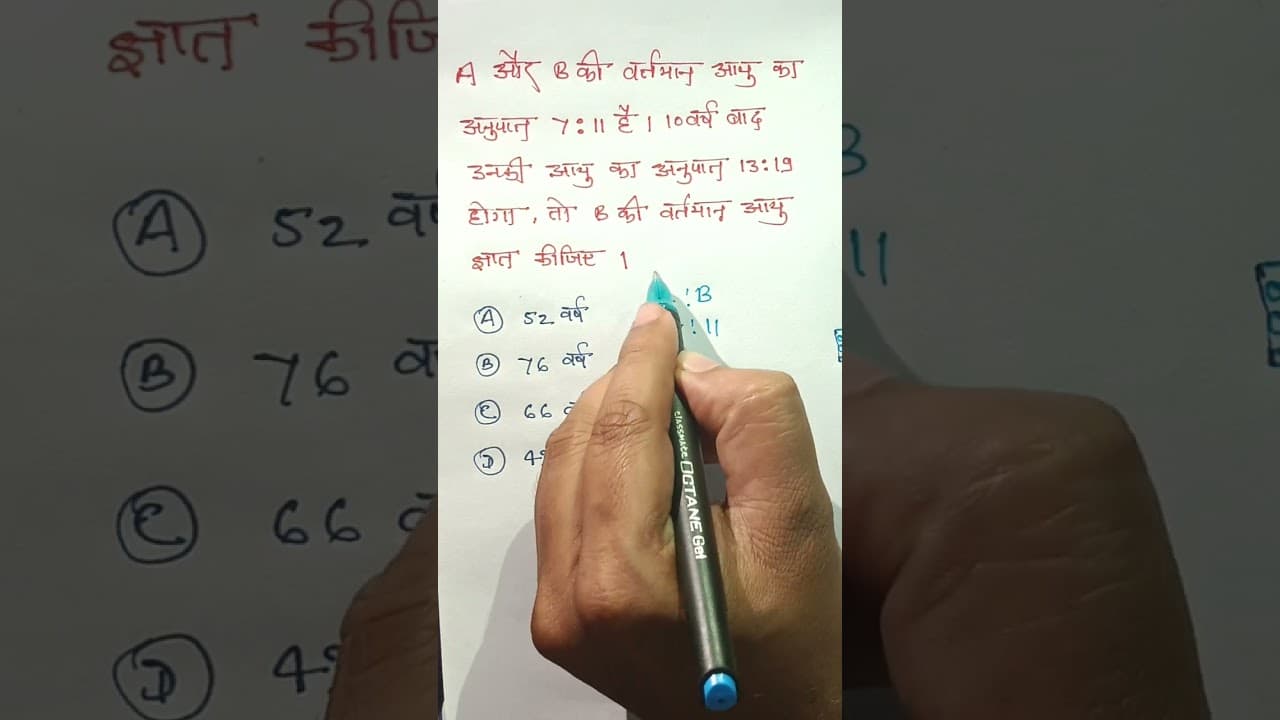 A और B की वर्तमान आयु का
अनुपात 7:11 है । 10 वर्ष बाद
उनकी आयु का अनुपात 13:19
होगा, तो B की वर्तमान आयु
ज्ञात कीजिए ।
: B
: 11
A 52 वर्ष
B 76 वर्ष
C 66
D
CLASSMATE OCTANE Gel